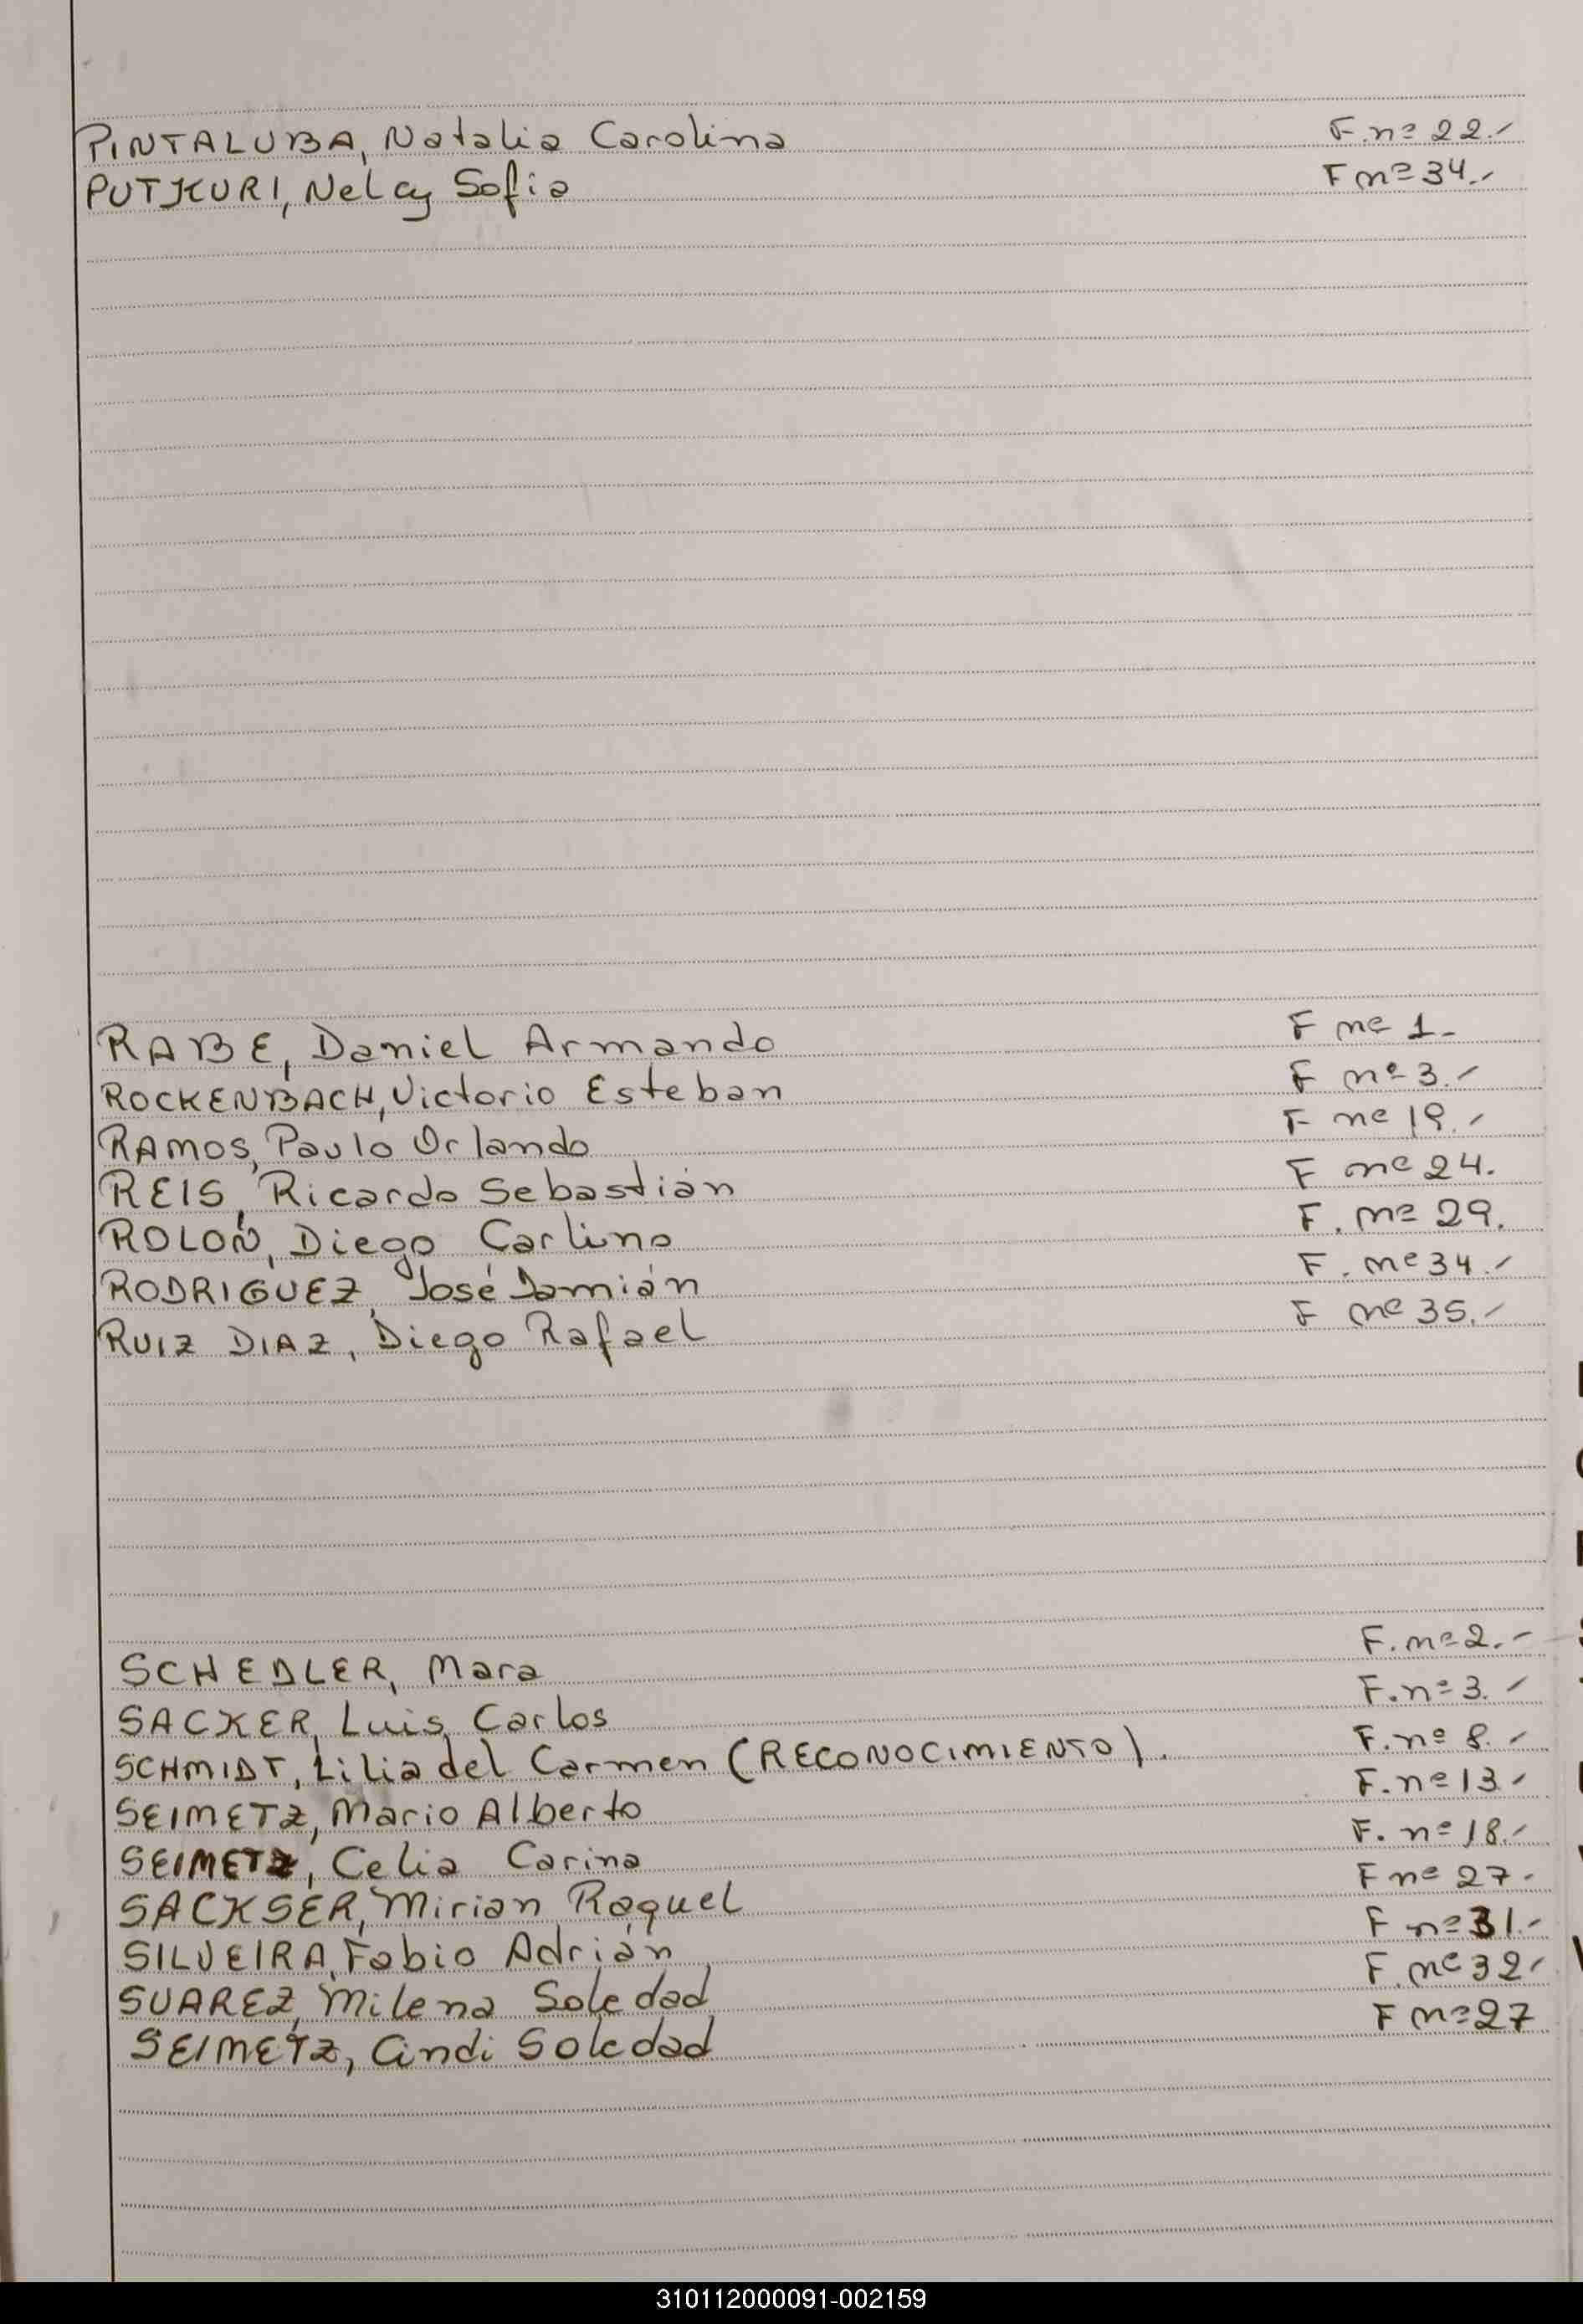 PINTALUBA, Natalia Carolina F. nº 22.-
PUTJKURI, Nelcy Sofia F nº 34.-
RABE, Daniel Armando F nº 1-
ROCKENBACH, Victorio Esteban F nº 3.-
RAMOS, Paulo Orlando F nº 19.-
REIS, Ricardo Sebastián F nº 24.
ROLON, Diego Carlino F. nº 29.
RODRIGUEZ, José Damián F. nº 34.-
RUIZ DIAZ, Diego Rafael F nº 35.-
SCHEDLER, Mara F. nº 2.-
SACKER, Luis Carlos F. nº 3.-
SCHMIDT, Lilia del Carmen (RECONOCIMIENTO). F. nº 8.-
SEIMETZ, Mario Alberto F. nº 13.-
SEIMETZ, Celia Carina F. nº 18.-
SACKSER, Mirian Raquel F nº 27.
SILVEIRA, Fabio Adrián F nº 31.-
SUAREZ, Milena Soledad F. nº 32.-
SEIMETZ, Cindi Soledad F nº 27
310112000091-002159